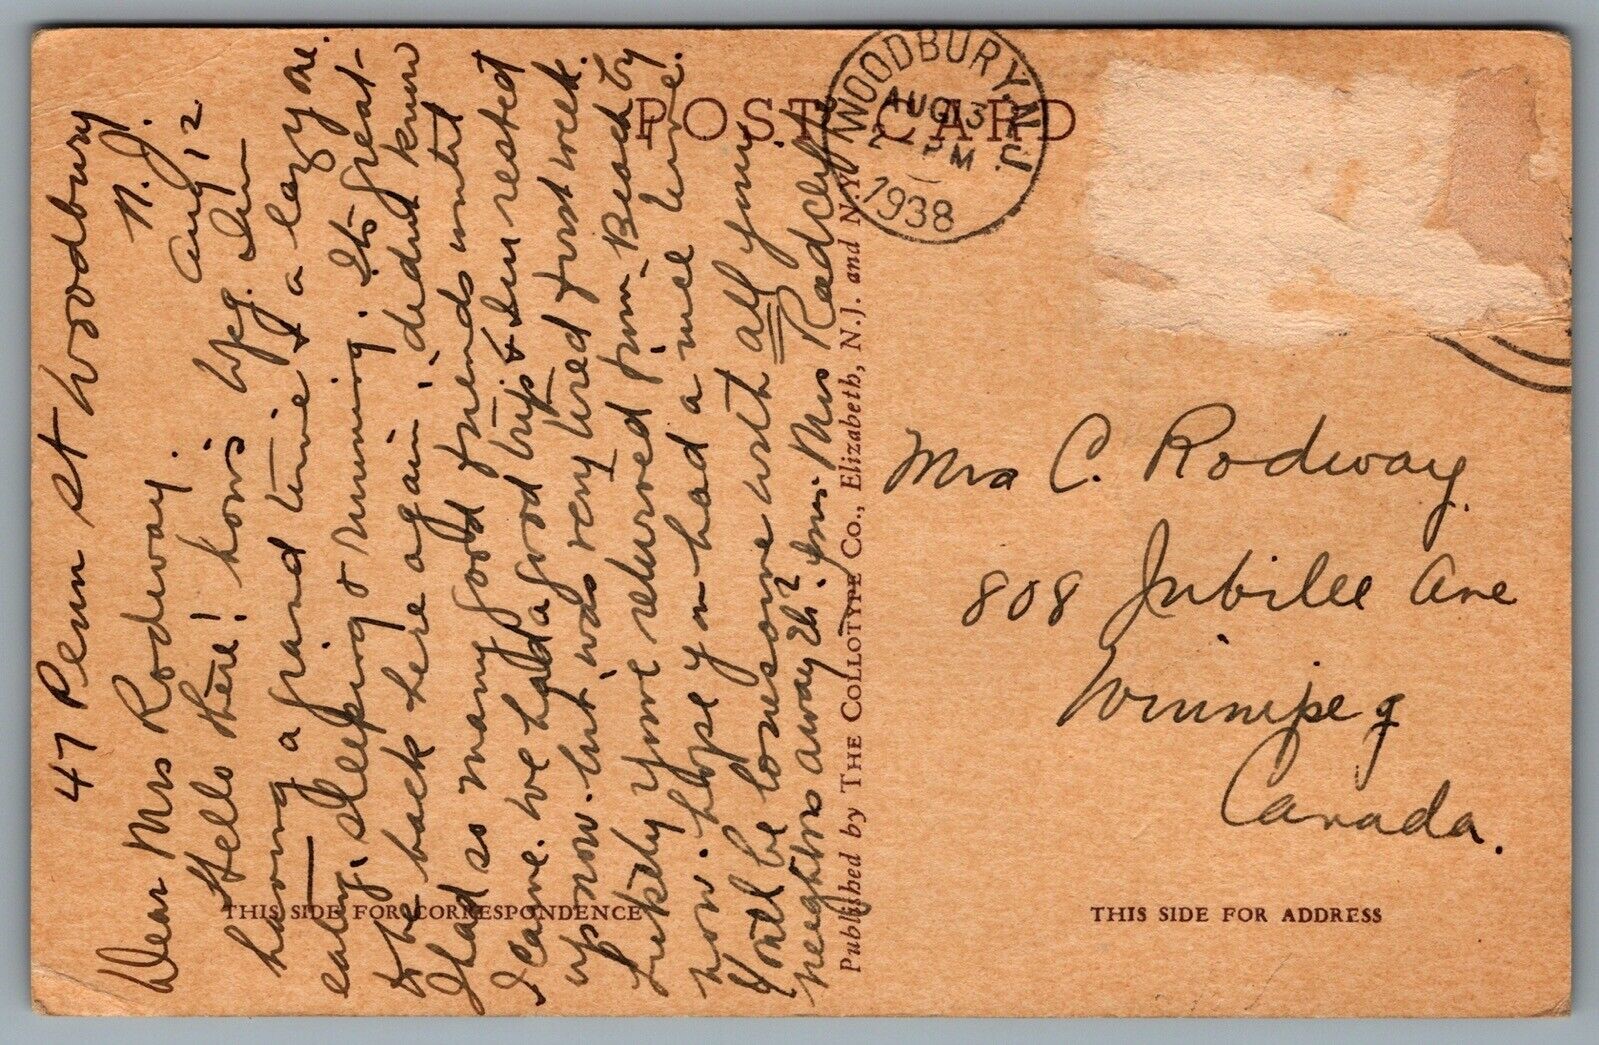 POST CARD
WOODBURY, N.J.
AUG 13
2 PM
1938
47 Penn St Woodbury
N. J.
Aug 12
Dear Mrs Rodway.
Hello there! how's Wpg. I'm
having a grand time & a lazy one.
eating, sleeping & running. Its great
to be back here again, i didnt know
I had so many good friends until
I came. We had a good trip & I'm rested
up now. but was very tired first week.
Likely you've returned from Beach by
now. hope you had a nice time.
You'll be lonesome with all your
neighbors away eh? Yours Mrs Radcliff
Published by THE COLLOTYPE CO., Elizabeth, N.J. and N.Y.
Mrs C. Rodway.
808 Jubilee Ave
Winnipeg
Canada.
THIS SIDE FOR CORRESPONDENCE
THIS SIDE FOR ADDRESS